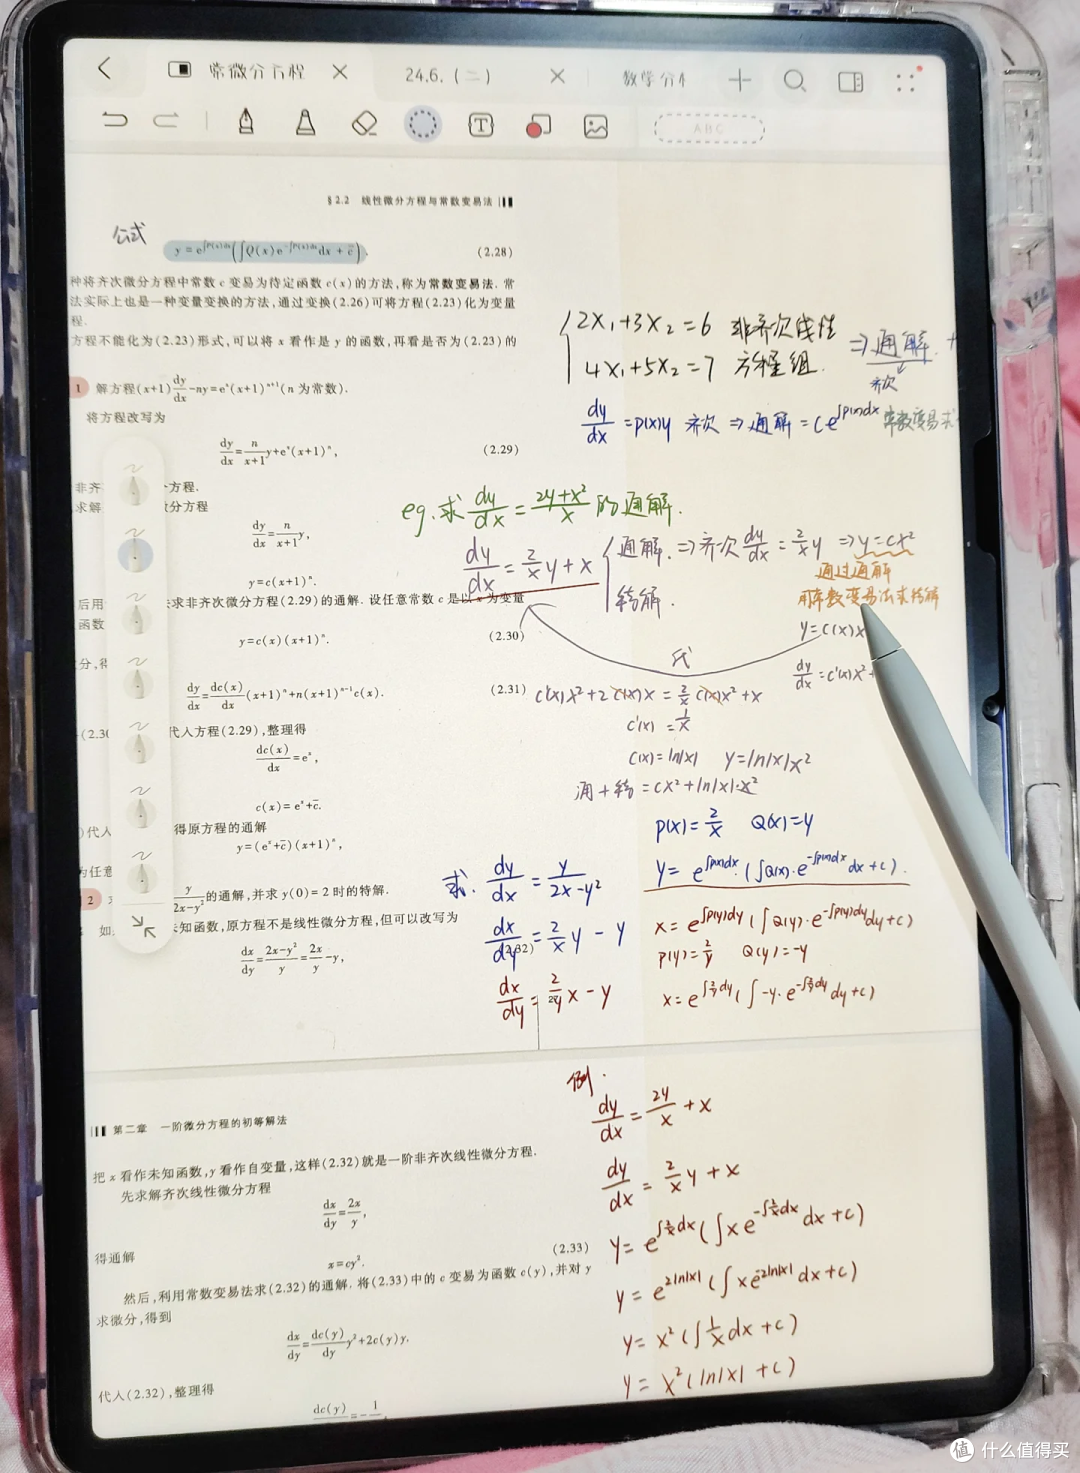 常微分方程 × 24.6.(二) × 数学分析
ABC
§2.2 线性微分方程与常数变易法
公式
y = e^{∫P(x)dx}(∫Q(x)e^{-∫P(x)dx}dx + c̄). (2.28)
种将齐次微分方程中常数 c 变易为待定函数 c(x) 的方法,称为常数变易法. 常
法实际上也是一种变量变换的方法,通过变换(2.26)可将方程(2.23)化为变量
程.
方程不能化为(2.23)形式,可以将 x 看作是 y 的函数,再看是否为(2.23)的
1 解方程(x+1)dy/dx-ny=e^x(x+1)^{n+1}(n 为常数).
将方程改写为
dy/dx=n/(x+1)y+e^x(x+1)^n, (2.29)
非齐 方程.
求解 分方程
dy/dx=n/(x+1)y,
y=c(x+1)^n.
后用 求非齐次微分方程(2.29)的通解. 设任意常数 c 是以 x 为变量
函数
y=c(x)(x+1)^n. (2.30)
分,得
dy/dx=dc(x)/dx(x+1)^n+n(x+1)^{n-1}c(x). (2.31)
(2.30 代入方程(2.29),整理得
dc(x)/dx=e^x,
c(x)=e^x+c̄.
)代入 得原方程的通解
y=(e^x+c̄)(x+1)^n,
为任意
2 y/(2x-y²)的通解,并求 y(0)=2 时的特解.
如 未知函数,原方程不是线性微分方程,但可以改写为
dx/dy=(2x-y²)/y=2x/y-y, (2.32)
2x₁+3x₂=6 非齐次线性
4x₁+5x₂=7 方程组. ⇒通解 +
齐次
dy/dx=p(x)y 齐次⇒通解=ce^{∫p(x)dx} 常数变易求
eg.求dy/dx=(2y+x²)/x的通解.
dy/dx=2/x y+x 通解.⇒齐次dy/dx=2/x y ⇒y=cx²
特解.
通过通解
用常数变易法求特解
y=c(x)x
dy/dx=c'(x)x²+
代
c'(x)x²+2c(x)x=2/x c(x)x²+x
c'(x)=1/x
c(x)=ln|x| y=ln|x|x²
通+特=cx²+ln|x|·x²
p(x)=2/x Q(x)=y
y=e^{∫p(x)dx}·(∫Q(x)·e^{-∫p(x)dx}dx+c).
求. dy/dx=y/(2x-y²)
dx/dy=2/x y-y
dx/dy=2/y x-y
x=e^{∫p(y)dy}(∫Q(y)·e^{-∫p(y)dy}dy+c)
p(y)=2/y Q(y)=-y
x=e^{∫2/y dy}(∫-y·e^{-∫2/y dy}dy+c)
第二章 一阶微分方程的初等解法
把 x 看作未知函数,y 看作自变量,这样(2.32)就是一阶非齐次线性微分方程.
先求解齐次线性微分方程
dx/dy=2x/y,
得通解
x=cy². (2.33)
然后,利用常数变易法求(2.32)的通解. 将(2.33)中的 c 变易为函数 c(y),并对 y
求微分,得到
dx/dy=dc(y)/dy y²+2c(y)y.
代入(2.32),整理得
dc(y)/=-1/,
例.
dy/dx=2y/x+x
dy/dx=2/x y+x
y=e^{∫2/x dx}(∫xe^{-∫2/x dx}dx+c)
y=e^{2ln|x|}(∫xe^{-2ln|x|}dx+c)
y=x²(∫1/x dx+c)
y=x²(ln|x|+c)
值 什么值得买